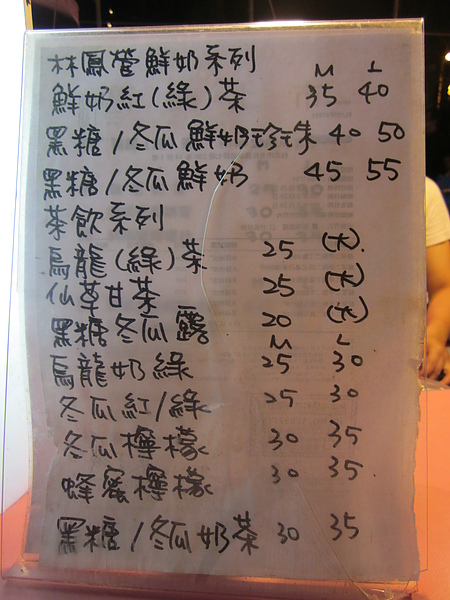 林鳳營鮮奶系列 M L
鮮奶紅(綠)茶 35 40
黑糖/冬瓜鮮奶珍珠 40 50
黑糖/冬瓜鮮奶 45 55
茶飲系列
烏龍(綠)茶 25 (大).
仙草甘茶 25 (大)
黑糖冬瓜露 20 (大)
M L
烏龍奶綠 25 30
冬瓜紅/綠 25 30
冬瓜檸檬 30 35
蜂蜜檸檬 30 35
黑糖/冬瓜奶茶 30 35